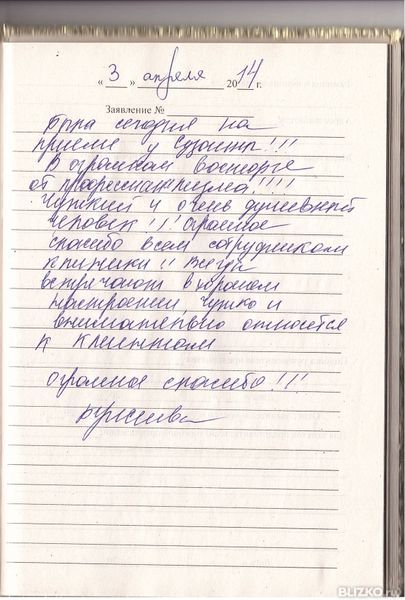 « 3 » апреля 2014 г.
Заявление №
Была сегодня на
приёме у Сюзанны!!!
В огромном восторге
от профессионализма!!!!
Чуткий и очень душевный
человек!!! Огромное
спасибо всем сотрудникам
клиники!! Всегда
встречают в хорошем
настроении чутко и
внимательно относятся
к клиентам
огромное спасибо!!!
BLIZKO.ru